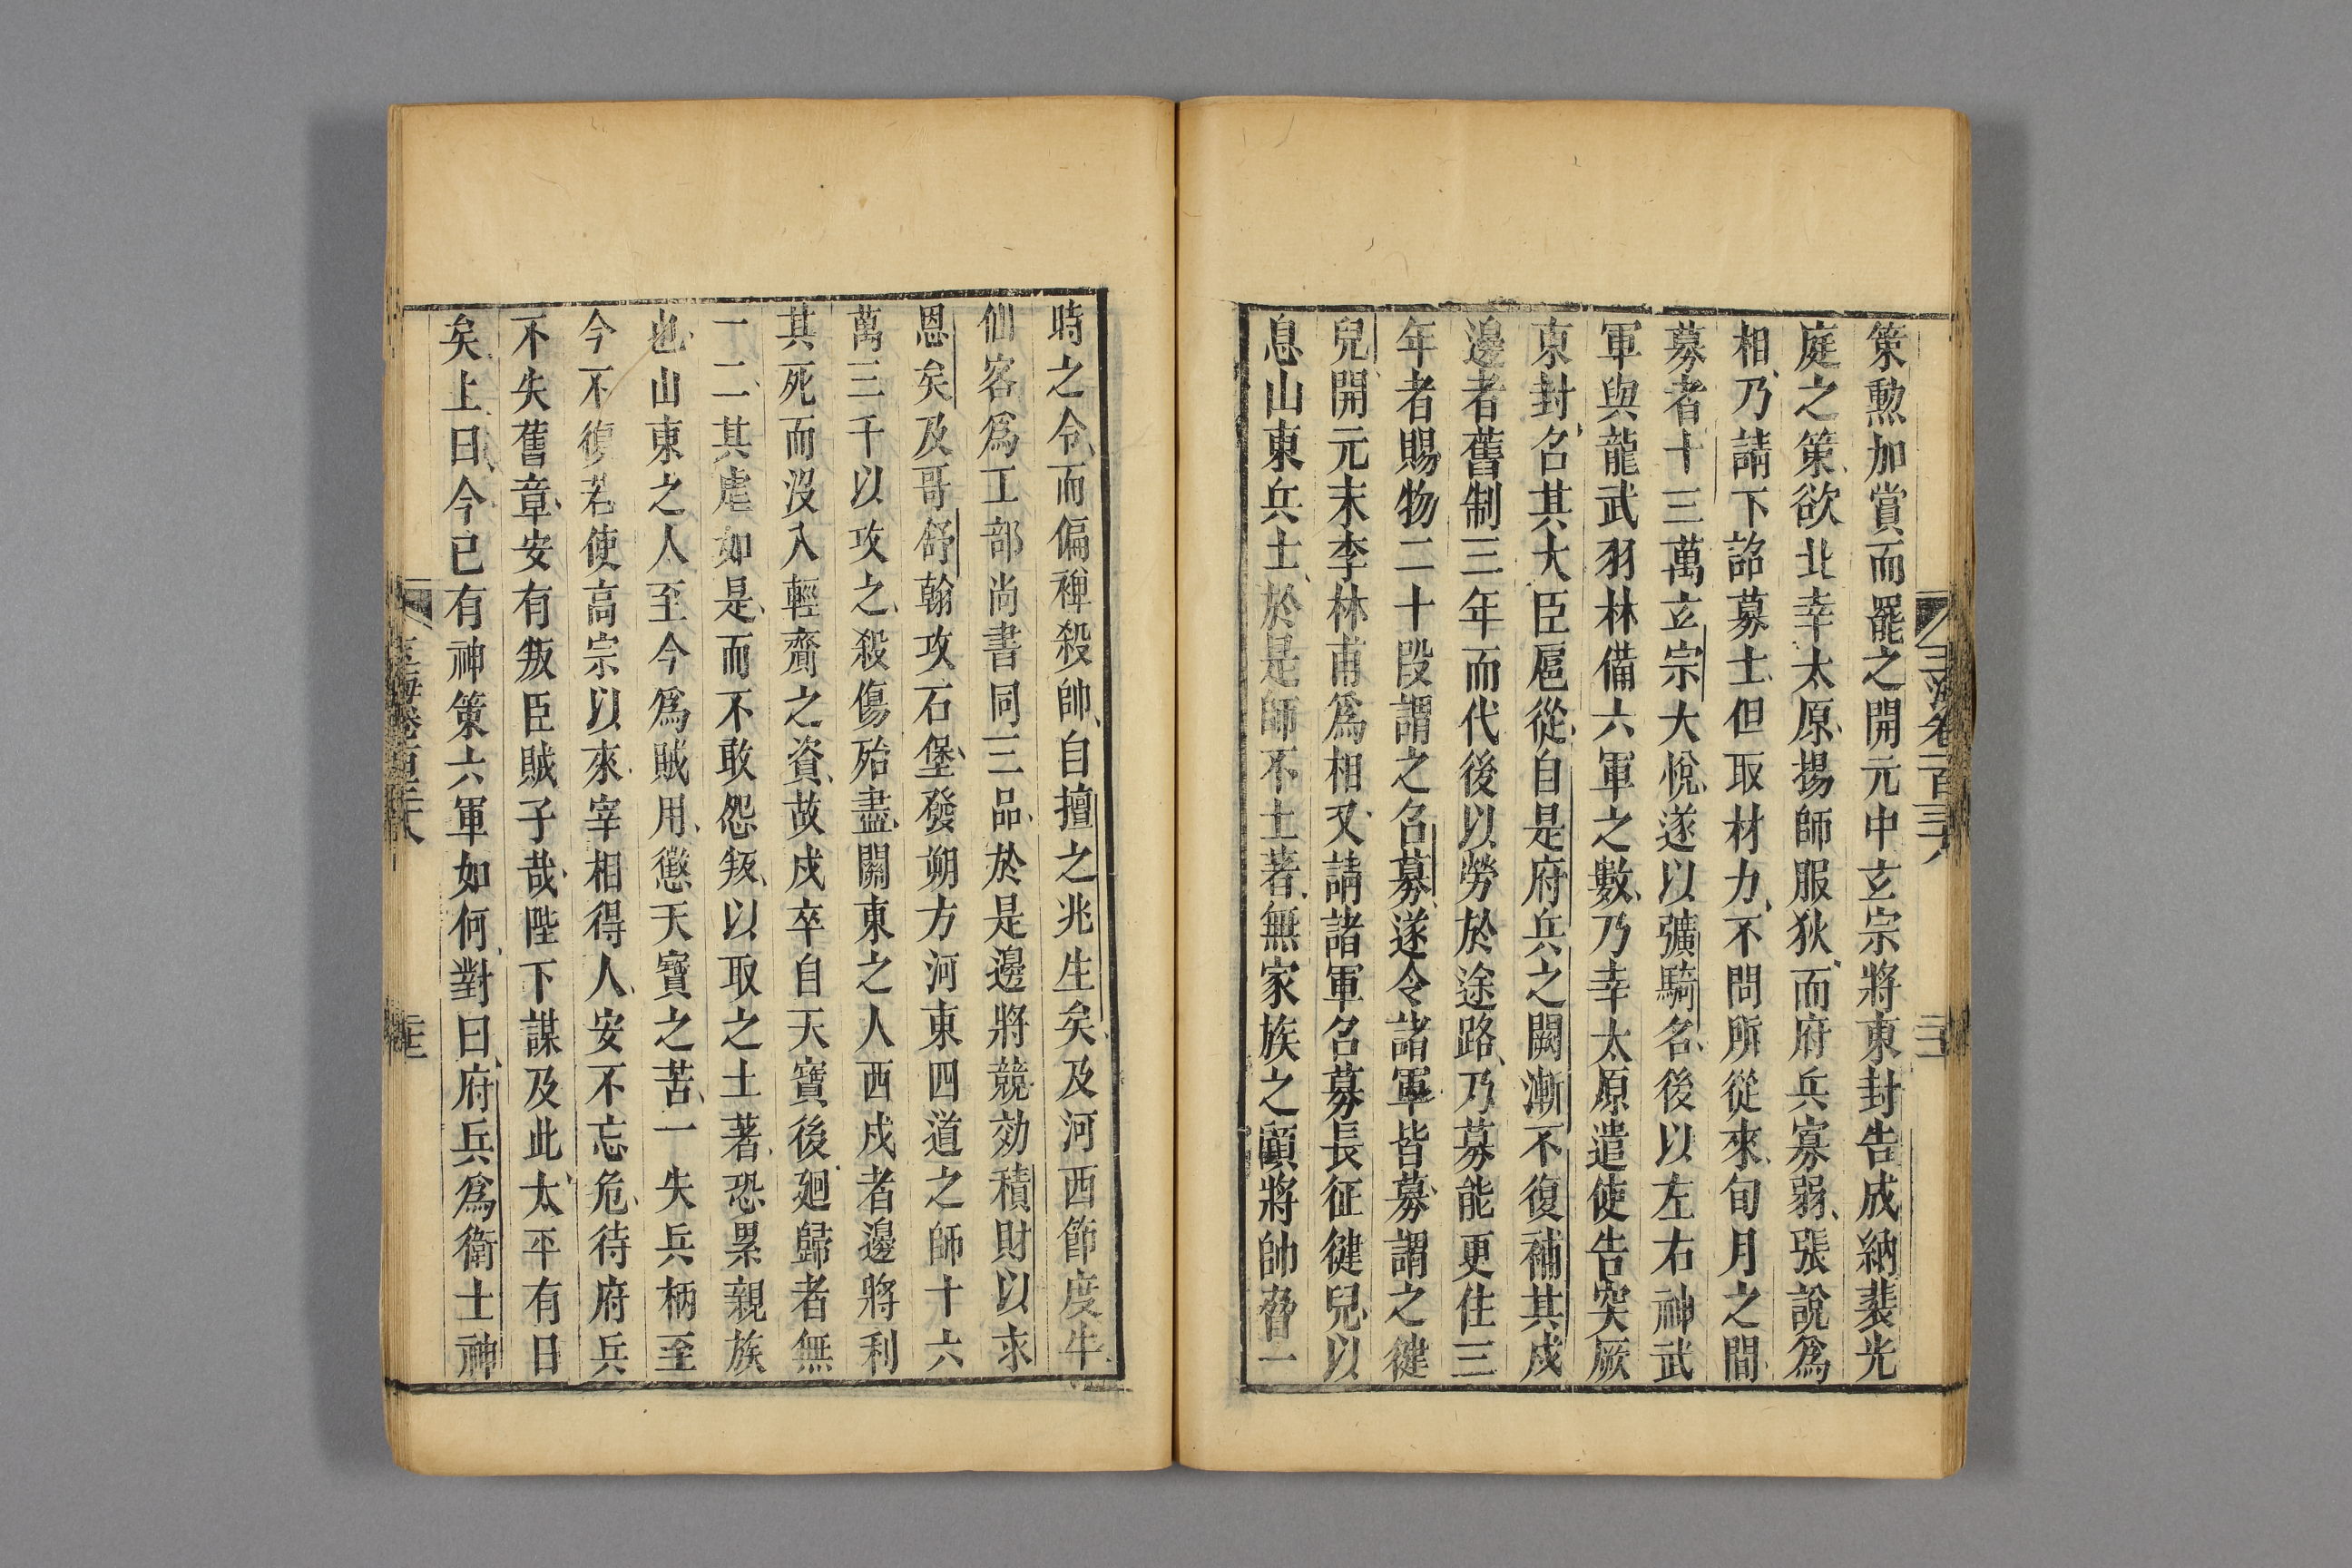 策勲加賞而罷之開元中玄宗將東封告成納裴光
庭之策欲北幸太原揚師服狄而府兵寡弱張說爲
相乃請下詔募士但取材力不問所從來旬月之間
募者十三萬玄宗大悅遂以彍騎名後以左右神武
軍與龍武羽林備六軍之數乃幸太原遣使告突厥
東封名其大臣扈從自是府兵之闕漸不復補其戍
邊者舊制三年而代後以勞於途路乃募能更住三
年者賜物二十段謂之名募遂令諸軍皆募謂之健
兒開元末李林甫爲相又請諸軍名募長征健兒以
息山東兵士於是師不土著無家族之顧將帥脅一
時之令而偏禆殺帥自擅之兆生矣及河西節度牛
仙客爲工部尚書同三品於是邊將競効積財以求
恩矣及哥舒翰攻石堡發朔方河東四道之師十六
萬三千以攻之殺傷殆盡關東之人西戍者邊將利
其死而沒入輕齎之資故戍卒自天寶後廻歸者無
一二其虐如是而不敢怨叛以取之土著恐累親族
也山東之人至今爲賊用懲天寶之苦一失兵柄至
今不復若使高宗以來宰相得人安不忘危待府兵
不失舊章安有叛臣賊子哉陛下謀及此太平有日
矣上曰今已有神策六軍如何對曰府兵爲衛士神
玉海卷百三十八